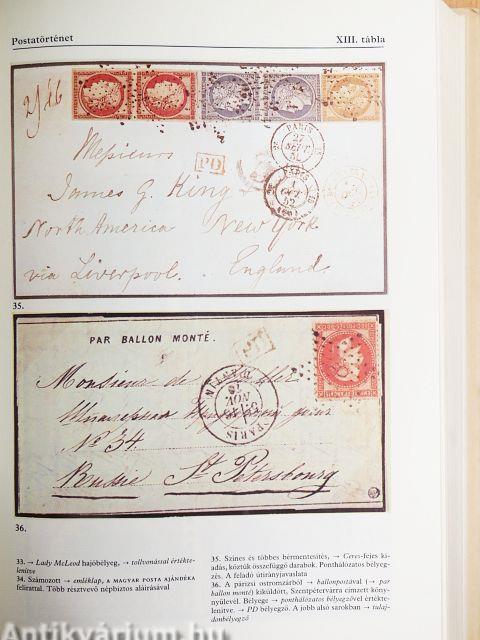 Postatörténet XIII. tábla
2/46
PD
PARIS
27
SEPT
PARIS
Messieurs
James G. King
North America New York
via Liverpool. England.
35.
PAR BALLON MONTÉ.
PD
PARIS
NOV
Monsieur de
No 34
Russie St Petersbourg
36.
33. → Lady McLeod hajóbélyeg, → tollvonással értékte-
lenítve
34. Számozott → emléklap, A MAGYAR POSTA AJÁNDÉKA
felirattal. Több résztvevő népbiztos aláírásával
35. Színes és többes bérmentesítés, → Ceres-fejes ki-
adás, köztük összefüggő darabok. Ponthálózatos bélyeg-
zés. A feladó útirányjavaslata
36. A párizsi ostromzárból → ballonpostával (→ par
ballon monté) kiküldött, Szentpétervárra címzett köny-
nyülevél. Bélyege → ponthálózatos bélyegzővel értékte-
lenítve. → PD bélyegző. A jobb alsó sarokban → tulaj-
donbélyegző
Antikvárium.hu